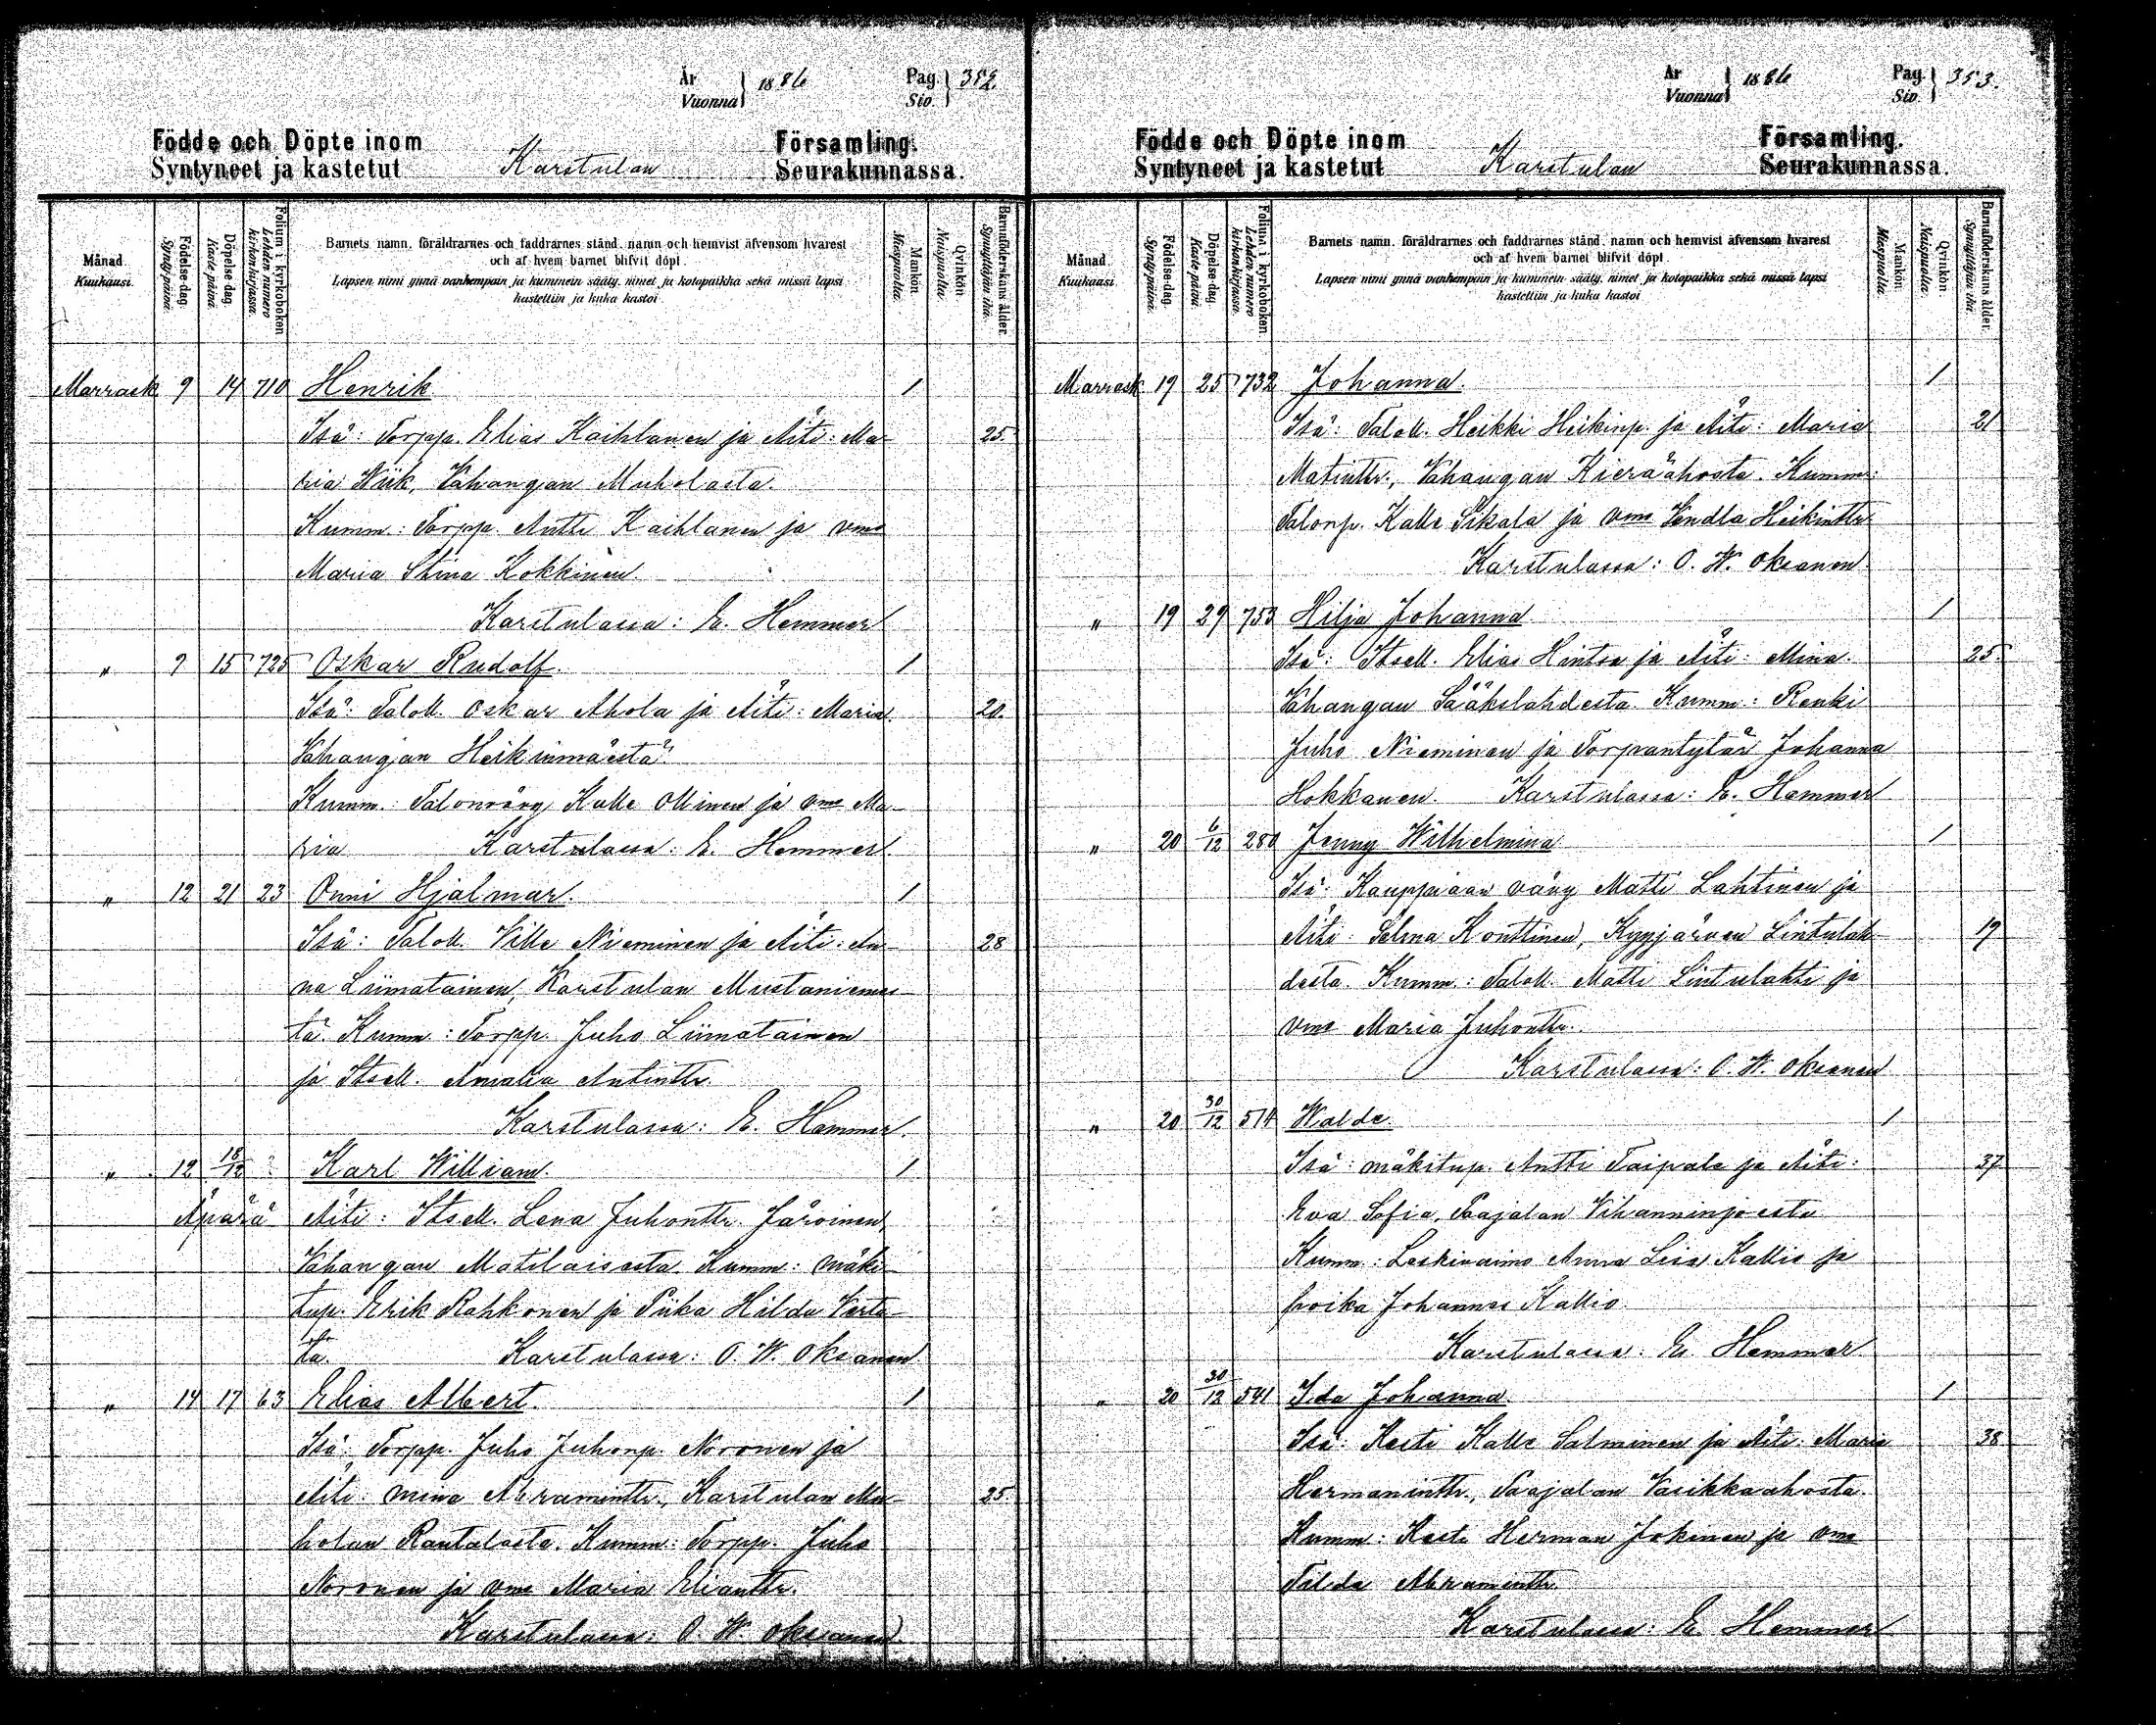 År
Vuonna } 1886 Pag. Siv. } 352.
Födde och Döpte inom Församling.
Syntyneet ja kastetut Karstulan Seurakunnassa.
Månad. Kuukausi.
Födelse-dag. Synty-päivä.
Döpelse-dag. Kaste-päivä.
Folium i kyrkoboken Lehden numero kirkonkirjassa.
Barnets namn, föräldrarnes och faddrarnes stånd, namn och hemvist äfvensom hvarest
och af hvem barnet blifvit döpt.
Lapsen nimi ynnä vanhempain ja kummein sääty, nimet ja kotopaikka sekä missä lapsi
kastettiin ja kuka kastoi
Mankön Miespuolia.
Qvinkön Naispuolia
Barnaföderskans ålder. Synnyttäjän ikä.
Marrask. 9 14 710 Henrik 1
Isä: Torpp. Elias Kaihlanen ja Äiti: Ma- 25.
ria Wiik, Vahangan Muholasta.
Kumm.: Torpp. Antti Kaihlanen ja vmo
Maria Stina Kokkinen.
Karstulassa: E. Hemmer
" 9 15 725 Oskar Rudolf. 1
Isä: Taloll. Oskar Ahola ja Äiti: Maria 20.
Vahangan Heikinmäestä
Kumm.: Talonvävy Kalle Ollinen ja vmo Ma-
ria Karstulassa: E. Hemmer.
" 12 21 23 Onni Hjalmar. 1
Isä: Taloll. Ville Nieminen ja Äiti: An- 28
na Liimatainen, Karstulan Mustaniemes-
tä. Kumm: Torpp. Juho Liimatainen
ja Itsell. Amalia Antintr.
Karstulassa: E. Hemmer.
" 12 18/12 ? Karl William. 1
Äpärä Äiti: Itsell. Lena Juhontr. Järvinen,
Vahangan Matilaisesta Kumm: mäki-
tup. Erik Rahkonen ja Piika Hilda
ta. Karstulassa: O. W. Oksanen
" 14 17 63 Elias Albert. 1
Isä: Torpp. Juho Juhonp. Noronen ja
Äiti: Mina Abramintr., Karstulan Mu- 25.
holan Rantalasta. Kumm: Torpp. Juho
Noronen ja vmo Maria Eliantr.
Karstulassa: O. W. Oksanen
År
Vuonna } 1886 Pag. Siv. } 353.
Födde och Döpte inom Församling.
Syntyneet ja kastetut Karstulan Seurakunnassa.
Månad. Kuukausi.
Födelse-dag. Synty-päivä.
Döpelse-dag. Kaste-päivä.
Folium i kyrkoboken Lehden numero kirkonkirjassa.
Barnets namn, föräldrarnes och faddrarnes stånd, namn och hemvist äfvensom hvarest
och af hvem barnet blifvit döpt.
Lapsen nimi ynnä vanhempain ja kummein sääty, nimet ja kotopaikka sekä missä lapsi
kastettiin ja kuka kastoi
Mankön Miespuolia.
Qvinkön Naispuolia.
Barnaföderskans ålder. Synnyttäjän ikä
Marrask 19 25 732 Johanna. 1
Isä: Taloll. Heikki Heikinp. ja Äiti: Maria 21
Matintr., Vahangan Kieräähosta. Kumm:
Talonp. Kalle Sikala ja vmo Vendla Heikintr.
Karstulassa: O. W. Oksanen
" 19 29 753 Hilja Johanna 1
Isä: Itsell. Elias Hintsa ja Äiti: Mina. 25.
Vahangan Sääkslahdesta. Kumm: Renki
Juho Nieminen ja Torpantytär Johanna
Hokkanen. Karstulassa: E. Hemmer
" 20 6/12 280 Jenny Wilhelmina 1
Isä: Kauppiaan vävy Matti Lahtinen ja
Äiti: Selma Konttinen, Kyyjärven Lintulah- 19
desta. Kumm.: Taloll. Matti Lintulahti ja
vmo Maria Juhontr.
Karstulassa: O. W. Oksanen
" 20 30/12 514 Walde. 1
Isä: mäkitup. Antti Taipale ja Äiti: 37
Eva Sofia, Paajalan Vihanninjoesta
Kumm.: Leskivaimo Anna Lisa Kallio ja
poika Johannes Kallio.
Karstulassa: E. Hemmer
" 20 30/12 541 Ida Johanna. 1
Isä: Kesti Kalle Salminen ja Äiti: Maria 38
Hermanintr., Paajalan Vasikkaahosta.
Kumm: Kesti Herman Jokinen ja vmo
Tilda Abramintr.
Karstulassa: E. Hemmer